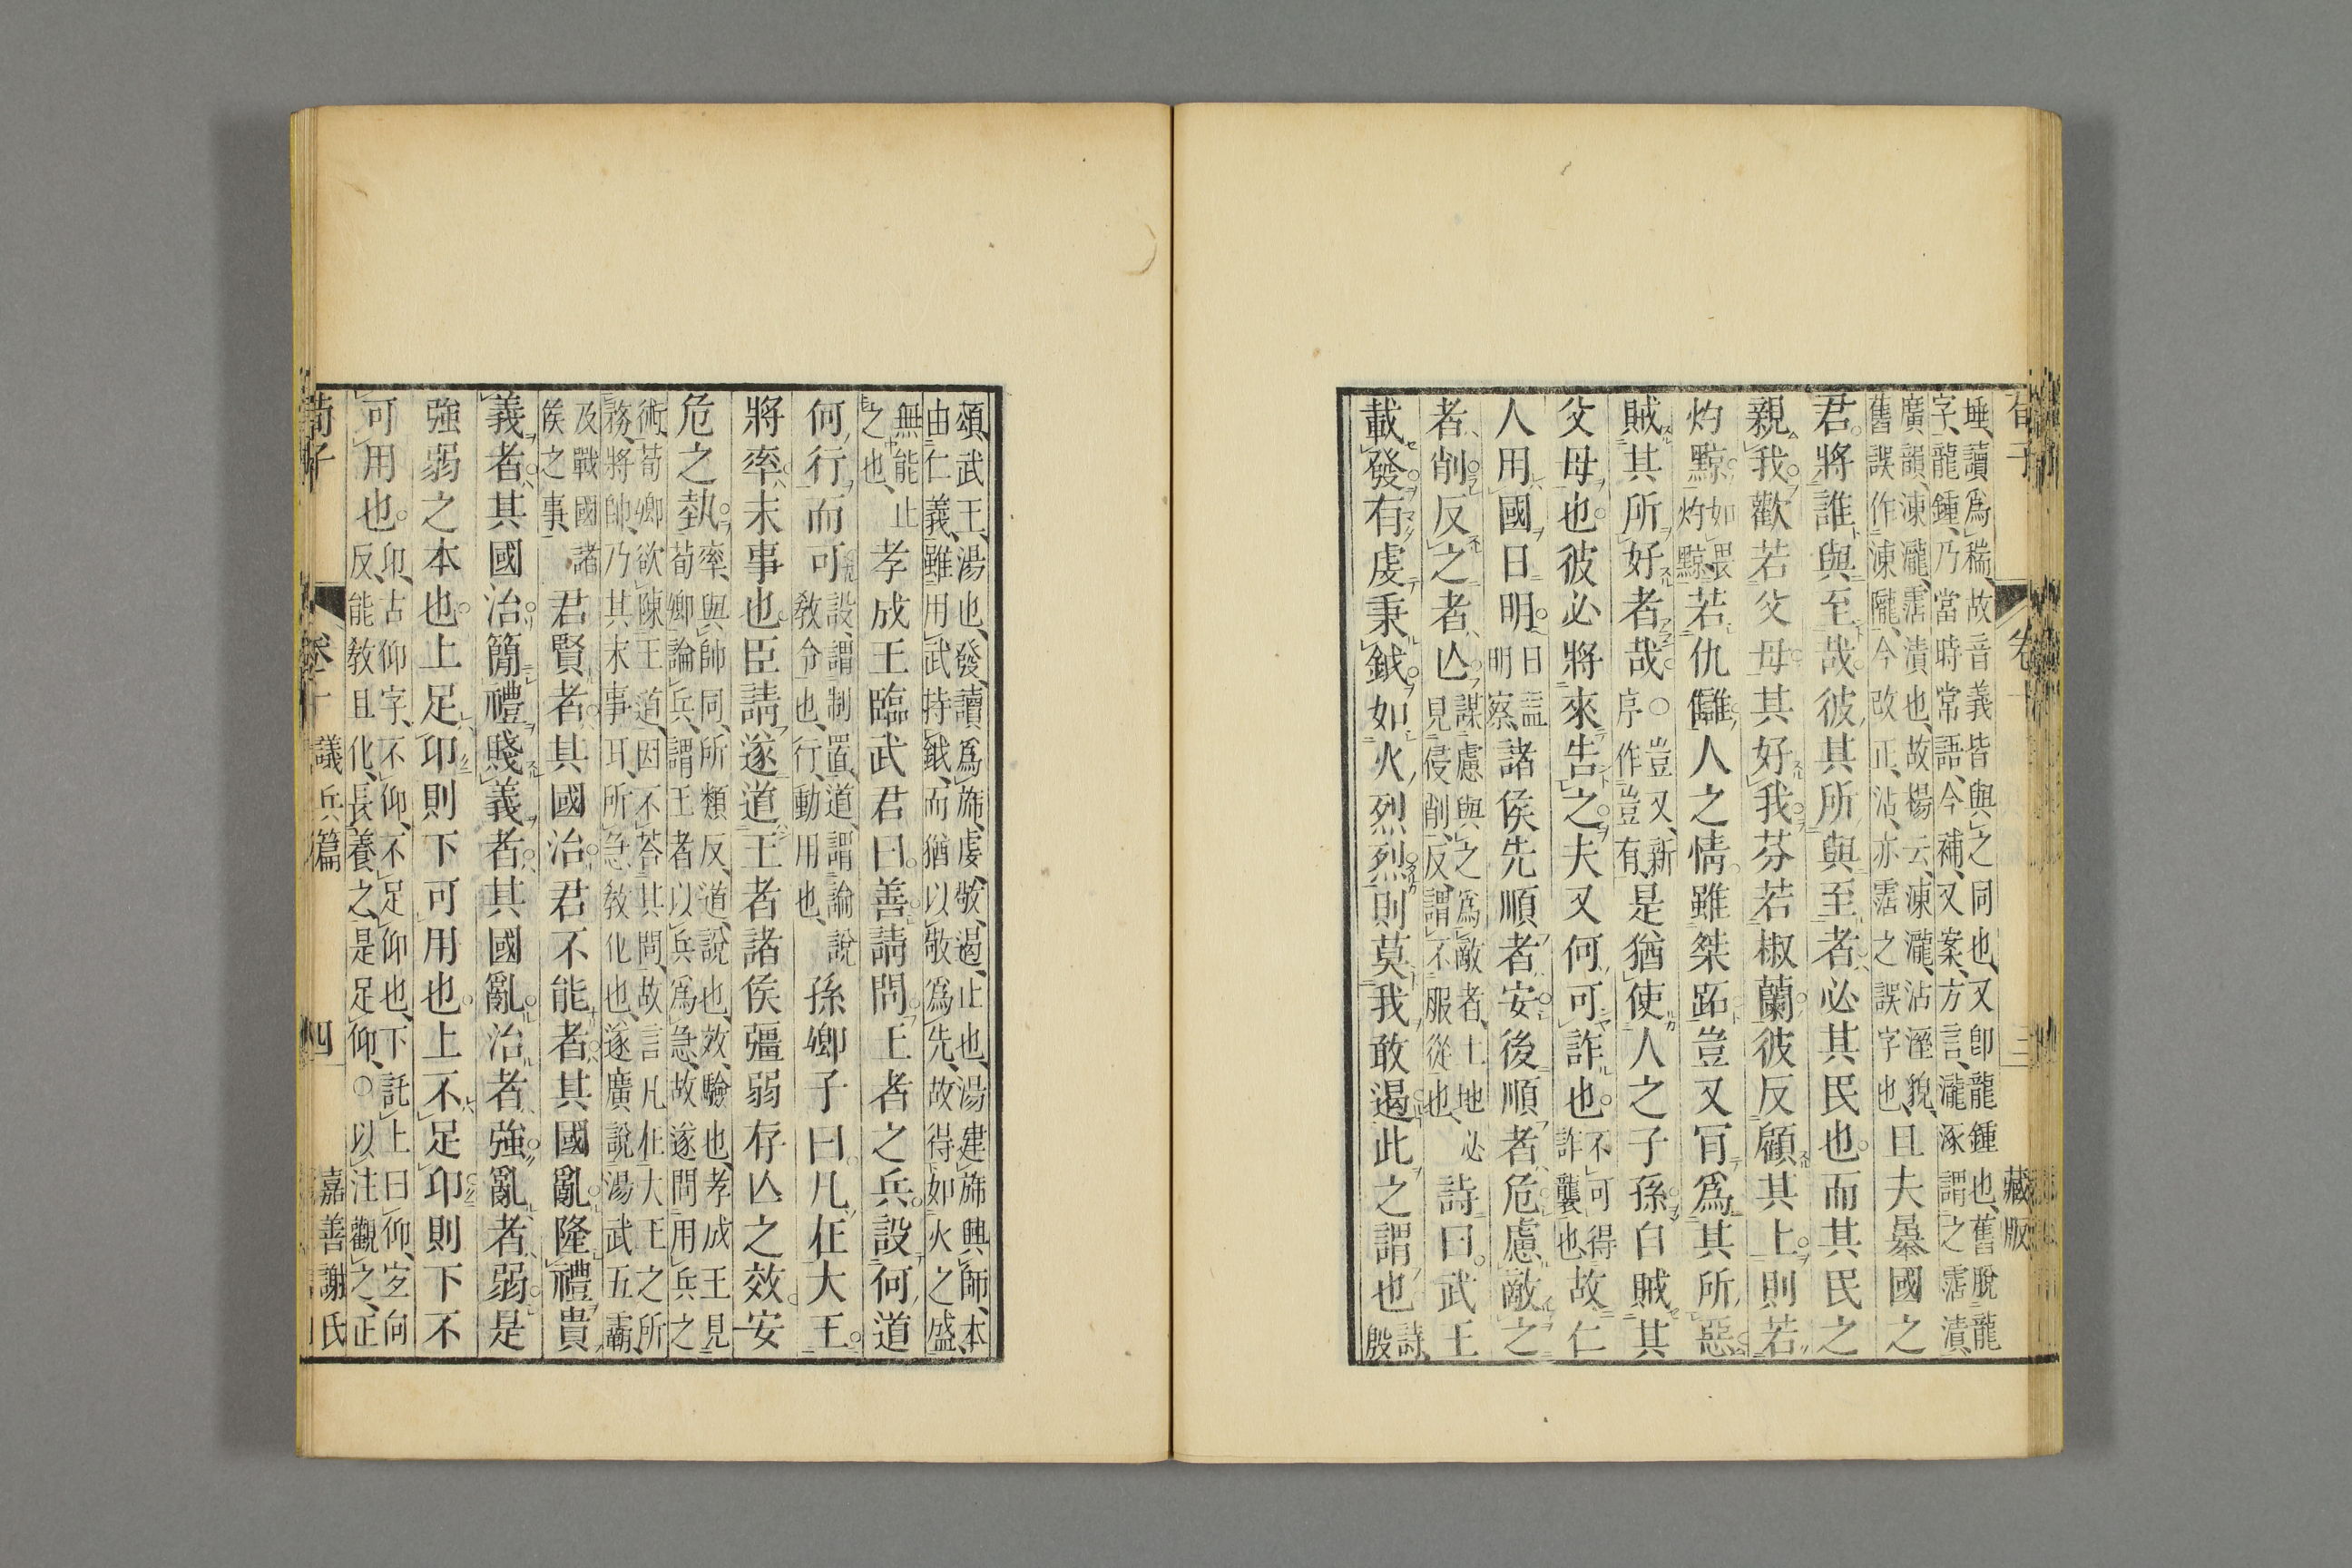 荀子 卷十 三 藏版
埵讀爲䅎故音義皆與之同也又卽龍鍾也舊脫龍
字龍鍾乃當時常語今補又案方言瀧涿謂之霑漬
廣韻涷瀧霑漬也故楊云涷瀧沾溼貌
舊誤作涷隴今改正沾亦霑之誤字也且夫暴國之
君將誰與至哉彼其所與至者必其民也而其民之
親我歡若父母其好我芬若椒蘭彼反顧其上則若
灼黥如畏灼黥若仇讎人之情雖桀跖豈又肎爲其所惡
賊其所好者哉〇豈又新序作豈有是猶使人之子孫自賊其
父母也彼必將來告之夫又何可詐也不可得詐襲也故仁
人用國日明日益明察諸侯先順者安後順者危慮敵之
者削反之者亾謀慮與之爲敵者土地必見侵削反謂不服從也詩曰武王
載發有虔秉鉞如火烈烈則莫我敢遏此之謂也詩殷
頌武王湯也發讀爲旆虔敬遏止也湯建旆興師本
由仁義雖用武持鉞而猶以敬爲先故得如火之盛
無能止之也孝成王臨武君曰善請問王者之兵設何道
何行而可設謂制置道謂論說敎令也行動用也孫卿子曰凡在大王
將率末事也臣請遂道王者諸侯彊弱存亾之效安
危之埶率與帥同所類反道說也效驗也孝成王見荀卿論兵謂王者以兵爲急故遂問用兵之
術荀卿欲陳王道因不荅其問故言凡在大王之所
務將帥乃其末事耳所急敎化也遂廣說湯武五霸
及戰國諸侯之事君賢者其國治君不能者其國亂隆禮貴
義者其國治簡禮賤義者其國亂治者強亂者弱是
強弱之本也上足卬則下可用也上不足卬則下不
可用也卬古仰字不仰不足仰也下託上曰仰宐向反能敎且化長養之是足仰〇以注觀之正
荀子 卷十 議兵篇 四 嘉善謝氏